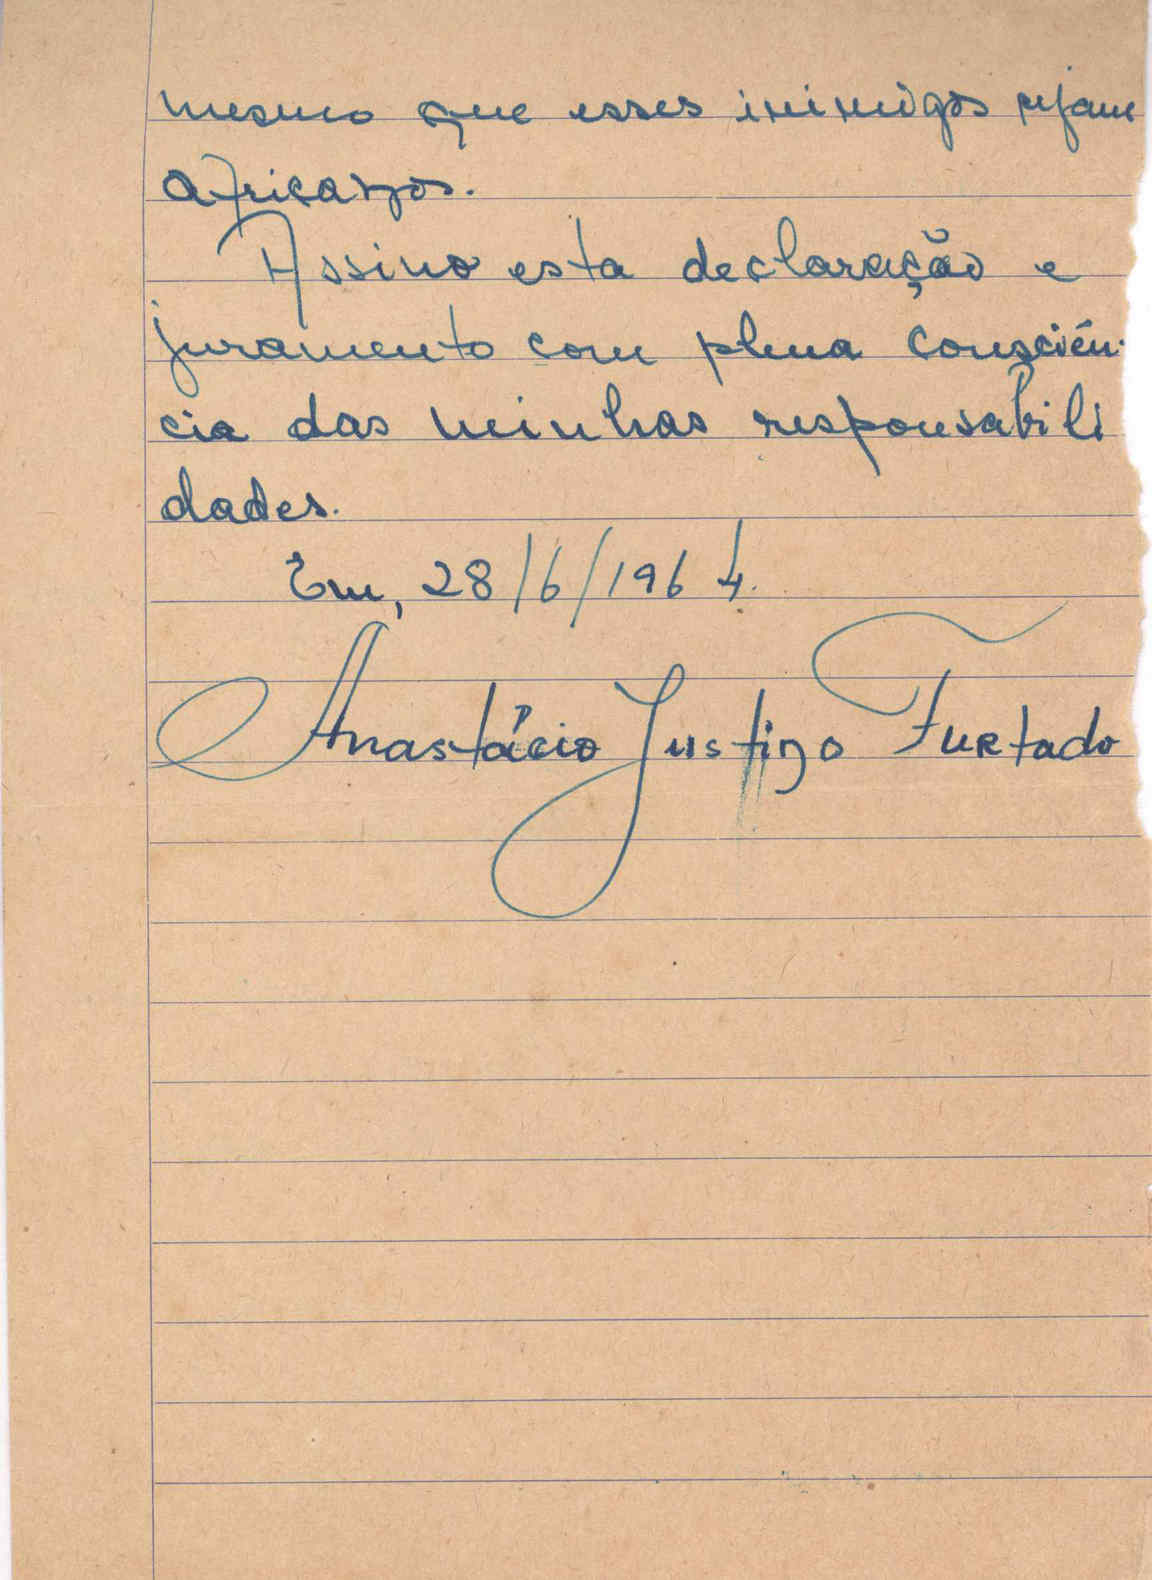 mesmo que esses inimigos sejam
africanos.
Assino esta declaração e
juramento com plena consciên-
cia das minhas responsabili
dades.
Em, 28/6/1964.
Anastácio Justino Furtado